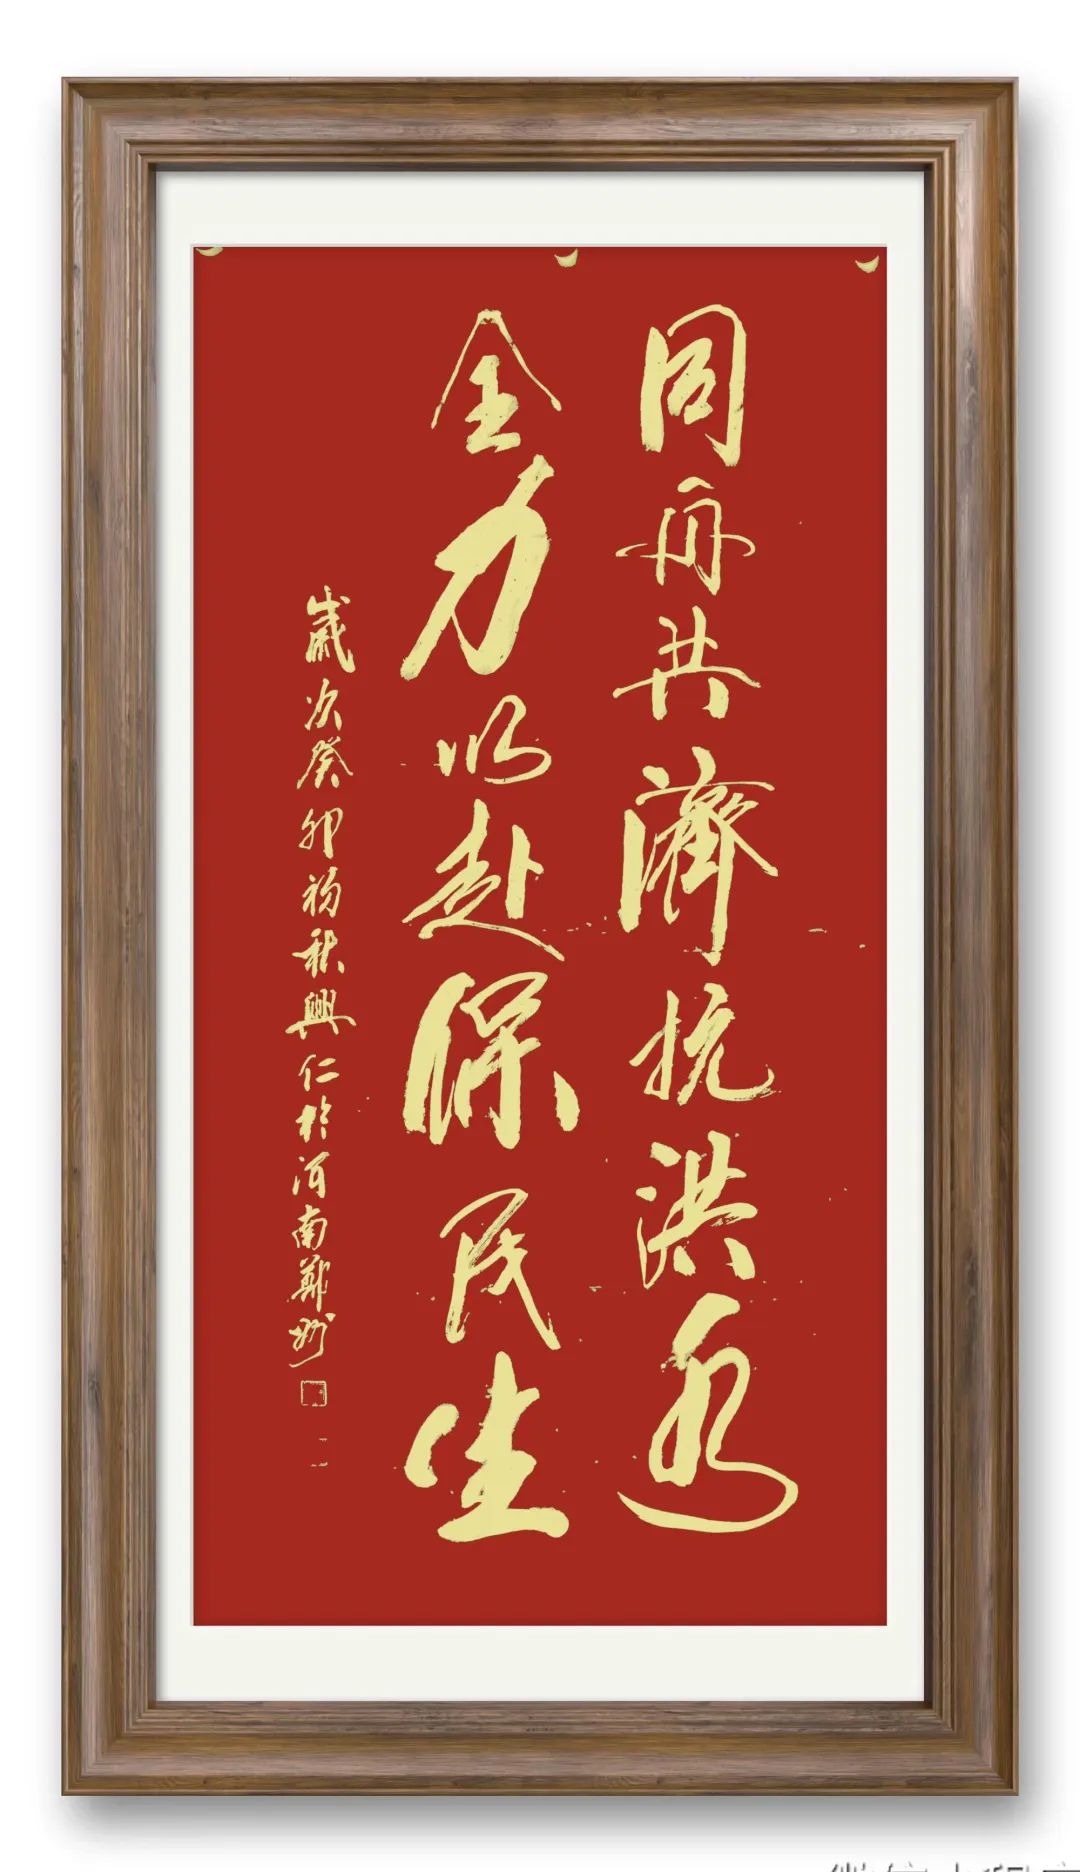 同舟共濟抗洪水
全力以赴保民生
歲次癸卯初秋興仁於河南鄭州